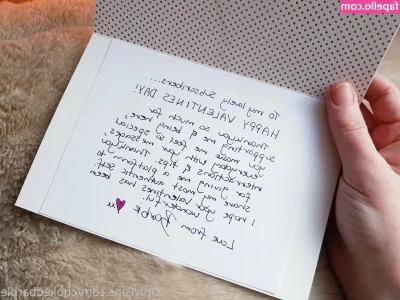 fapello.com
To my lovely subscribers...
HAPPY VALENTINES DAY!
Thankyou so much for
supporting me & being here,
you make me feel so special
everyday with your messages
interactions & tips. Thankyou
for giving me a platform to
share my most authentic self.
I hope your Valentines has been
wonderful!
Love from Barbie xx
OnlyFans.com/chokedbarbie